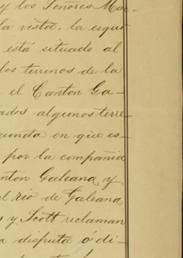 y los Señores Ma-
la vista, la esqui
está situado al
los terrenos de la
el Canton Ga-
ados algunos terre
unda en que es-
por la compañia
nton Galeana y
el rio de Galeana
s y Scott reclaman
a disputa ó di-